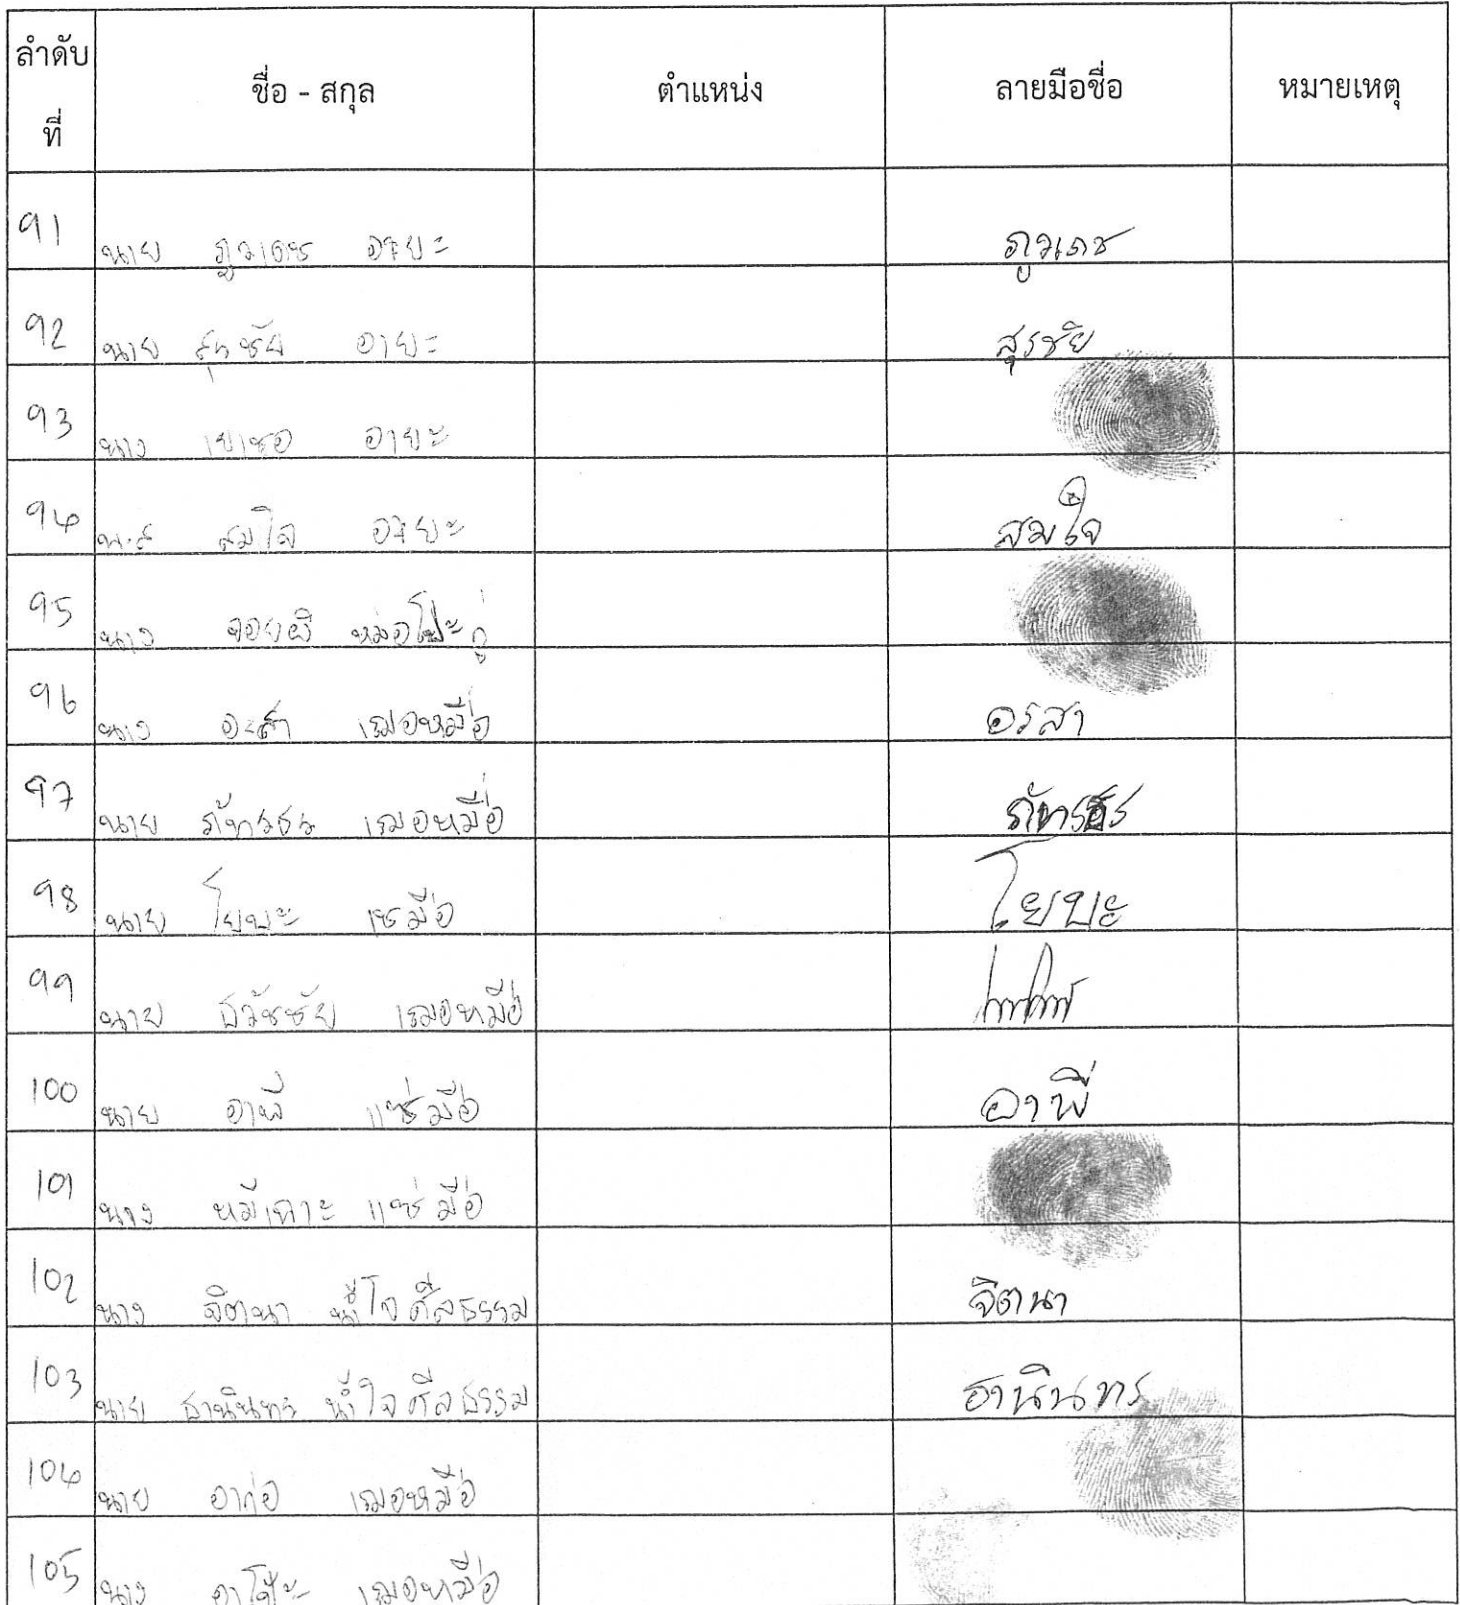 ลำดับที่ ชื่อ - สกุล ตำแหน่ง ลายมือชื่อ หมายเหตุ
91 นาย ภูวเดช อายะ ภูวเดช
92 นาย สุรชัย อายะ สุรชัย
93 นาง เยเซอ อายะ
94 น.ส สมใจ อายะ สมใจ
95 นาง จอยผี หม่อโปะกู่
96 นาง อรสา เฌอหมื่อ อรสา
97 นาย ภัทรธร เฌอหมื่อ ภัทรธร
98 นาย โยบะ เชมื่อ โยบะ
99 นาย ธวัชชัย เฌอหมื่อ
100 นาย อาพี แซ่มื่อ อาพี
101 นาง หมี่เกาะ แซ่มื่อ
102 นาง จิตนา น้ำใจศีลธรรม จิตนา
103 นาย ธานินทร น้ำใจศีลธรรม ธานินทร
104 นาย อาก่อ เฌอหมื่อ
105 นาง เฌอหมื่อ